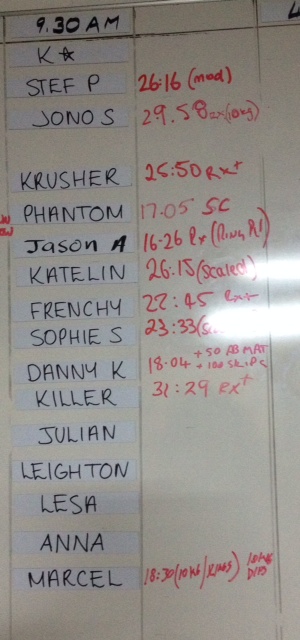 9.30 AM
K☆
STEF P 26:16 (mod)
JONO S 29.58
KRUSHER 25:50 Rx+
PHANTOM 17.05 SC
Jason A 16-26 Rx (Ring PU)
KATELIN 26.15 (Scaled)
FRENCHY 22:45 Rx+
SOPHIE S 23:33
DANNY K 18.04 +50 AB MAT
+100 SKIPS
KILLER 31:29 Rx+
JULIAN
LEIGHTON
LESA
ANNA
MARCEL 18:30 (10KG/RINGS)